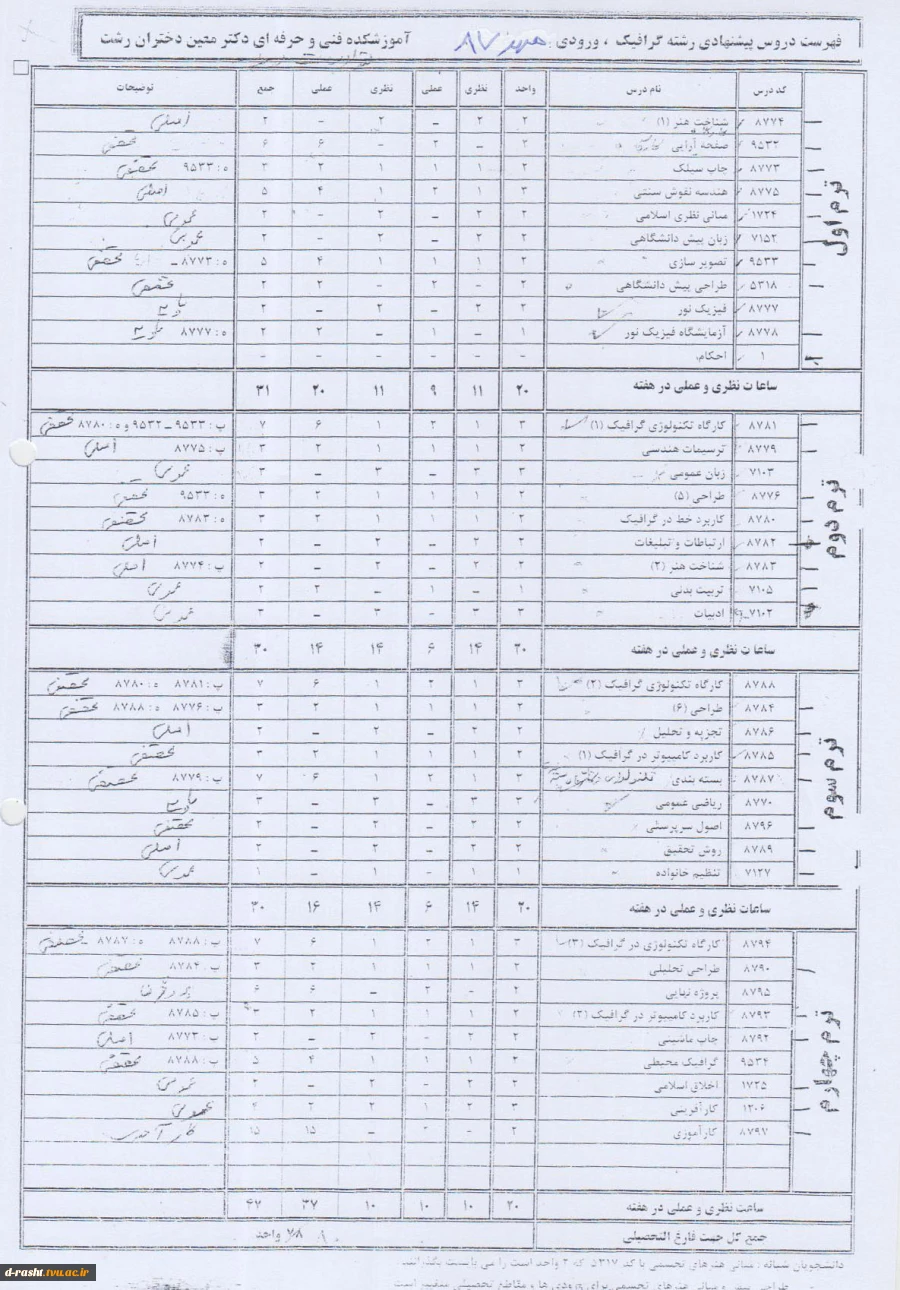 فهرست دروس پیشنهادی رشته گرافیک ، ورودی مهر ۸۷ آموزشکده فنی و حرفه ای دکتر معین دختران رشت
کد درس نام درس واحد نظری عملی نظری عملی جمع توضیحات
ترم اول
۸۷۷۴ شناخت هنر (۱) ۲ ۲ – ۲ – ۲ اصلی
۹۵۳۲ صفحه آرایی ۲ – ۲ – ۶ ۶
۸۷۷۳ چاپ سیلک ۲ ۱ ۱ ۱ ۲ ۳ ه : ۹۵۳۳
۸۷۷۵ هندسه نقوش سنتی ۳ ۱ ۲ ۱ ۴ ۵ اصلی
۱۷۲۴ مبانی نظری اسلامی ۲ ۲ – ۲ – ۲ عمومی
۷۱۵۲ زبان پیش دانشگاهی ۲ ۲ – ۲ – ۲ عمومی
۹۵۳۳ تصویر سازی ۲ ۱ ۱ ۱ ۴ ۵ ه : ۸۷۷۳
۵۳۱۸ طراحی پیش دانشگاهی ۲ – ۲ – ۲ ۲
۸۷۷۷ فیزیک نور ۲ ۲ – ۲ – ۲ پایه
۸۷۷۸ آزمایشگاه فیزیک نور ۱ – ۱ – ۲ ۲ ه : ۸۷۷۷ پایه
۱ احکام – – – – – –
ساعات نظری و عملی در هفته ۲۰ ۱۱ ۹ ۱۱ ۲۰ ۳۱
ترم دوم
۸۷۸۱ کارگاه تکنولوژی گرافیک (۱) ۳ ۱ ۲ ۱ ۶ ۷ پ : ۹۵۳۳ – ۹۵۳۲ و ه : ۸۷۸۰
۸۷۷۹ ترسیمات هندسی ۲ ۱ ۱ ۱ ۲ ۳ پ : ۸۷۷۵ اصلی
۷۱۰۳ زبان عمومی ۳ ۳ – ۳ – ۳ عمومی
۸۷۷۶ طراحی (۵) ۲ ۱ ۱ ۱ ۲ ۳ ه : ۹۵۳۳
۸۷۸۰ کاربرد خط در گرافیک ۲ ۱ ۱ ۱ ۲ ۳ ه : ۸۷۸۳
۸۷۸۲ ارتباطات و تبلیغات ۲ ۲ – ۲ – ۲ اصلی
۸۷۸۳ شناخت هنر (۲) ۲ ۲ – ۲ – ۲ پ : ۸۷۷۴ اصلی
۷۱۰۵ تربیت بدنی ۱ – ۱ – ۲ ۲ عمومی
۷۱۰۲ ادبیات ۳ ۳ – ۳ – ۳ عمومی
ساعات نظری و عملی در هفته ۲۰ ۱۴ ۶ ۱۴ ۱۴ ۳۰
ترم سوم
۸۷۸۸ کارگاه تکنولوژی گرافیک (۲) ۳ ۱ ۲ ۱ ۶ ۷ پ : ۸۷۸۱ ه : ۸۷۸۰
۸۷۸۴ طراحی (۶) ۲ ۱ ۱ ۱ ۲ ۳ پ : ۸۷۷۶ ه : ۸۷۸۸
۸۷۸۶ تجزیه و تحلیل ۲ ۲ – ۲ – ۲ اصلی
۸۷۸۵ کاربرد کامپیوتر در گرافیک (۱) ۲ ۱ ۱ ۱ ۲ ۳
۸۷۸۷ بسته بندی ۳ ۱ ۲ ۱ ۶ ۷ پ : ۸۷۷۹
۸۷۷۰ ریاضی عمومی ۳ ۳ – ۳ – ۳ پایه
۸۷۹۶ اصول سرپرستی ۲ ۲ – ۲ – ۲
۸۷۸۹ روش تحقیق ۲ ۲ – ۲ – ۲ اصلی
۷۱۲۷ تنظیم خانواده ۱ ۱ – ۱ – ۱ عمومی
ساعات نظری و عملی در هفته ۲۰ ۱۴ ۶ ۱۴ ۱۶ ۳۰
ترم چهارم
۸۷۹۴ کارگاه تکنولوژی در گرافیک (۳) ۳ ۱ ۲ ۱ ۶ ۷ پ : ۸۷۸۸ ه : ۸۷۸۷
۸۷۹۰ طراحی تحلیلی ۲ ۱ ۱ ۱ ۲ ۳ پ : ۸۷۸۴
۸۷۹۵ پروژه نهایی ۲ – ۲ – ۶ ۶
۸۷۹۳ کاربرد کامپیوتر در گرافیک (۲) ۲ ۱ ۱ ۱ ۲ ۳ پ : ۸۷۸۵
۸۷۹۲ چاپ ماشینی ۲ ۲ – ۲ – ۲ پ : ۸۷۷۳ اصلی
۹۵۳۴ گرافیک محیطی ۲ ۱ ۱ ۱ ۴ ۵ پ : ۸۷۸۸
۱۷۲۵ اخلاق اسلامی ۲ ۲ – ۲ – ۲ عمومی
۱۲۰۶ کارآفرینی ۳ ۲ ۱ ۲ ۲ ۴ عمومی
۸۷۹۷ کارآموزی ۲ – ۲ – ۱۵ ۱۵
ساعت نظری و عملی در هفته ۲۰ ۱۰ ۱۰ ۱۰ ۳۷ ۴۷
جمع کل جهت فارغ التحصیلی ۷۸ واحد
دانشجویان شبانه : مبانی هنرهای تجسمی با کد ۵۳۱۷ که ۲ واحد است را می بایست بگذرانند.
d-rasht.tvu.ac.ir